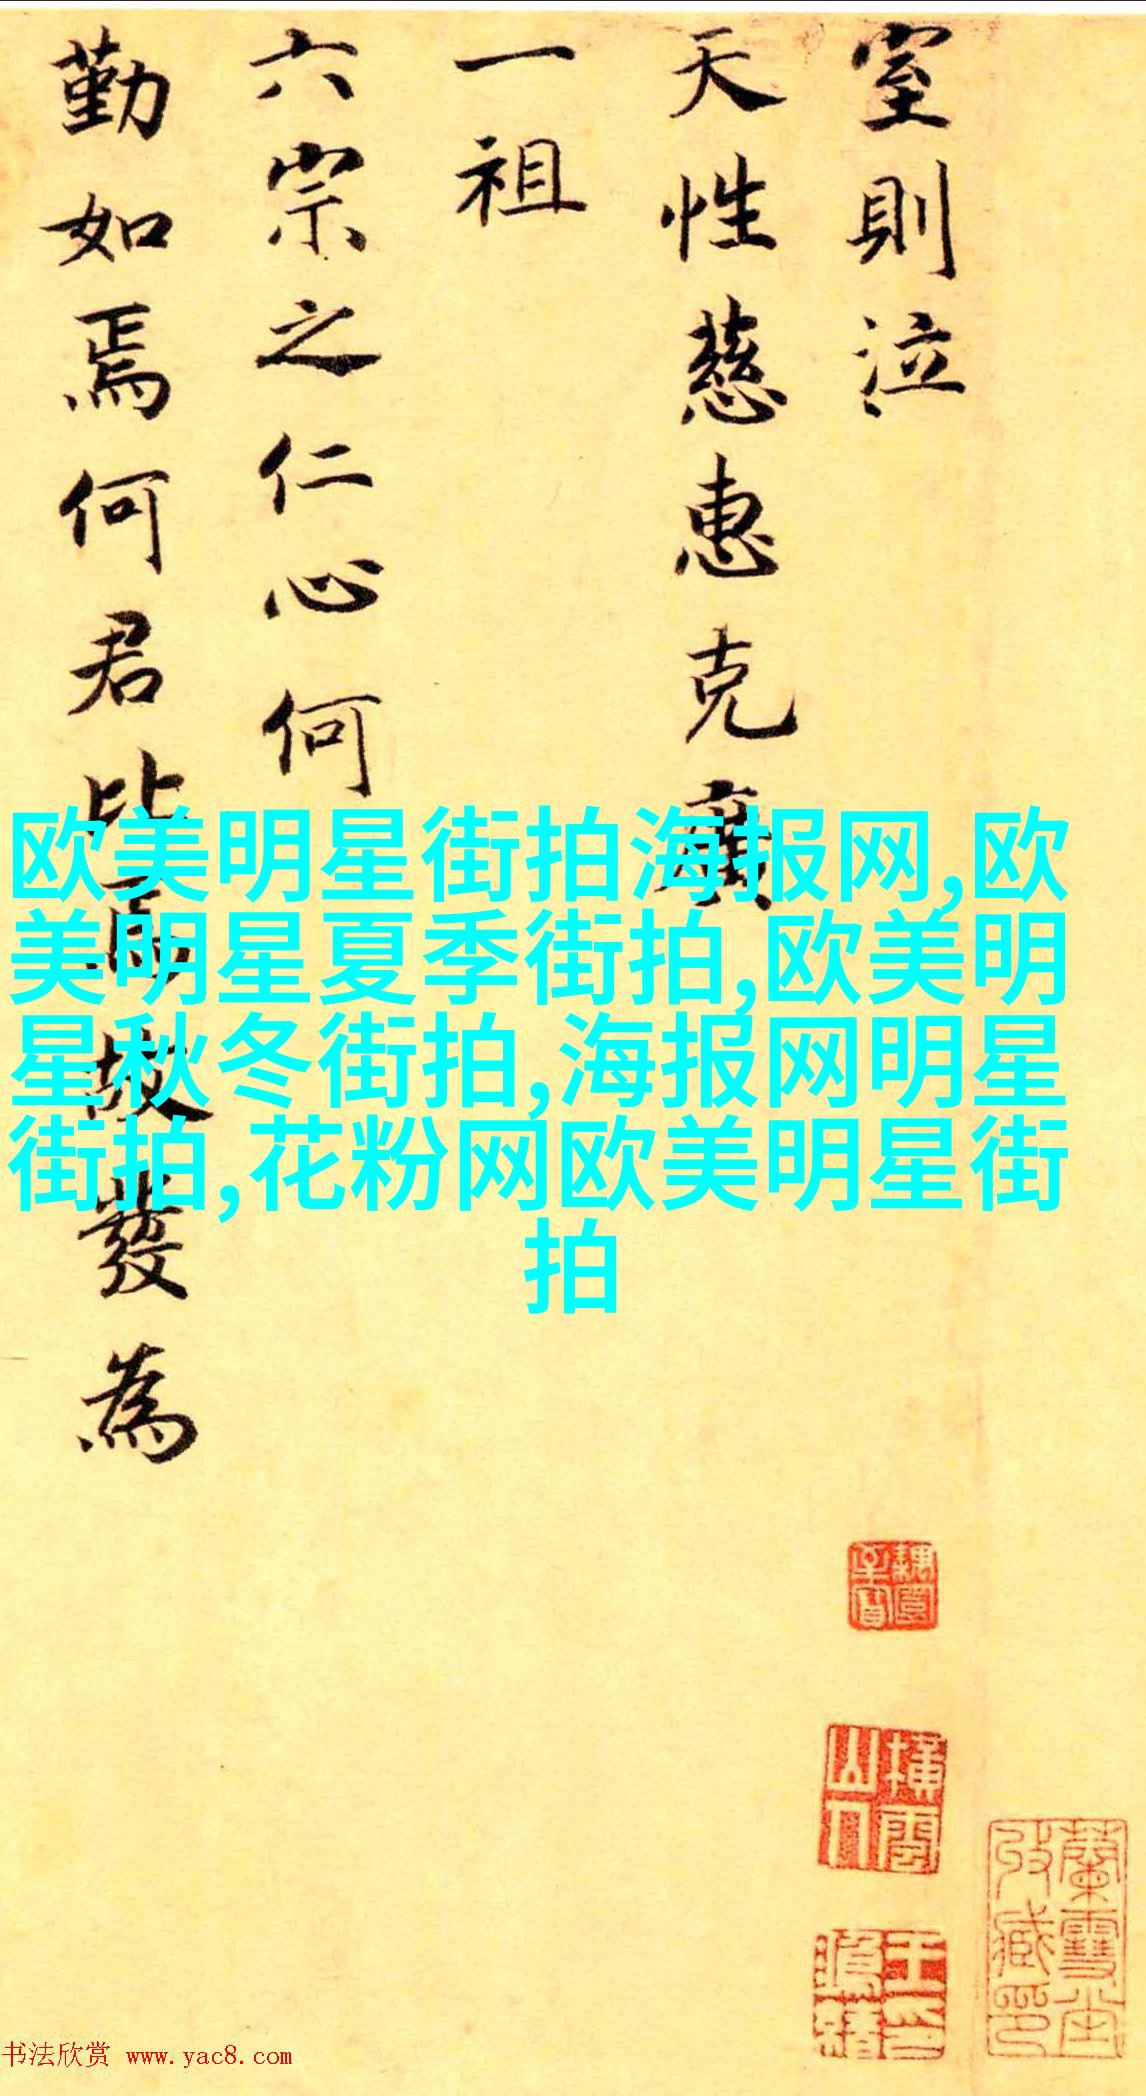 室則泣
天性慈惠克廣
一祖
六宗之仁心何
勤如焉何君故發為
欧美明星街拍海报网,欧
美明星夏季街拍,欧美明
星秋冬街拍,海报网明星
街拍,花粉网欧美明星街
拍
橫雲山人
王印鴻緒
书法欣赏 www.yac8.com